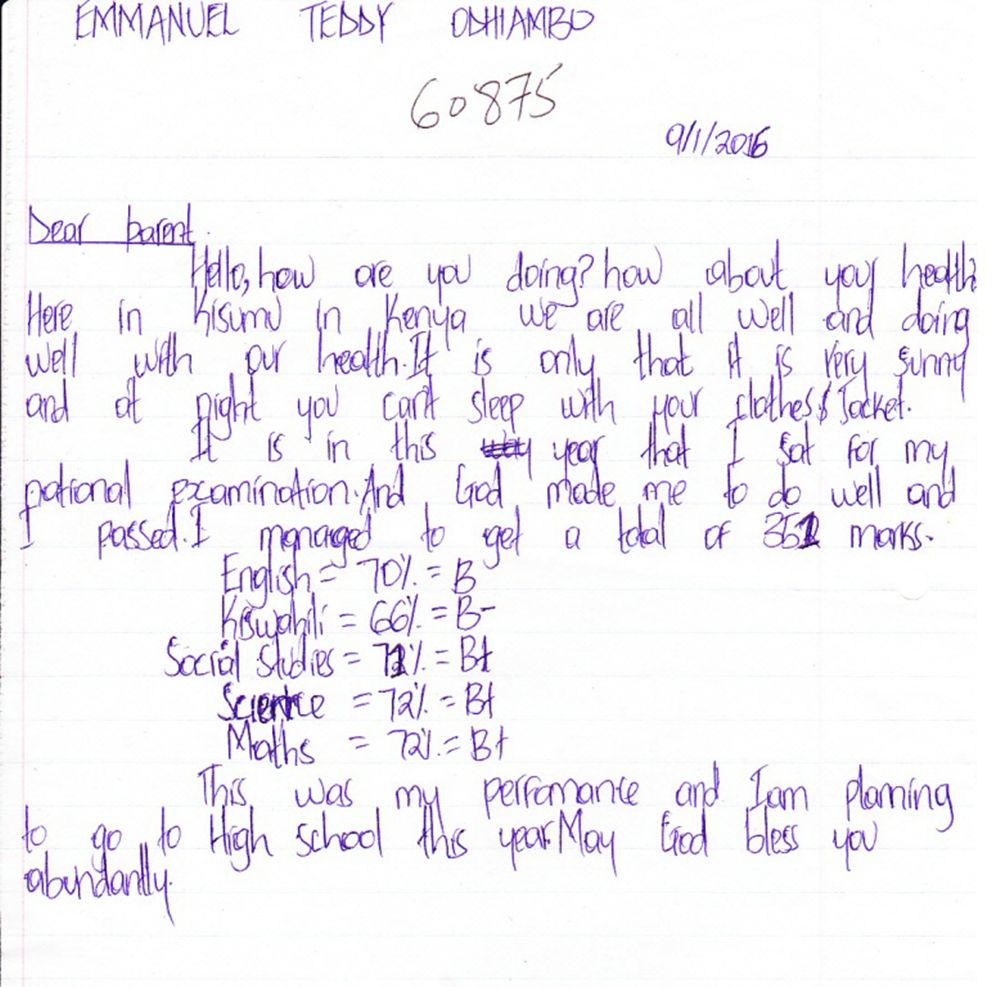 EMMANUEL TEDDY ODHIAMBO
60875
9/1/2016
Dear parent.
Hello, how are you doing? how about your health
Here in Kisumu in Kenya we are all well and doing
well with our health. It is only that it is very sunny
and at night you can't sleep with your clothes & Jacket.
It is in this year that I sat for my
national examination. And God made me to do well and
I passed. I managed to get a total of 351 marks.
English = 70% = B
Kiswahili = 66% = B-
Social studies = 71% = B+
Science = 72% = B+
Maths = 72% = B+
This was my perfomance and I am planning
to go to High school this year. May God bless you
abundantly.